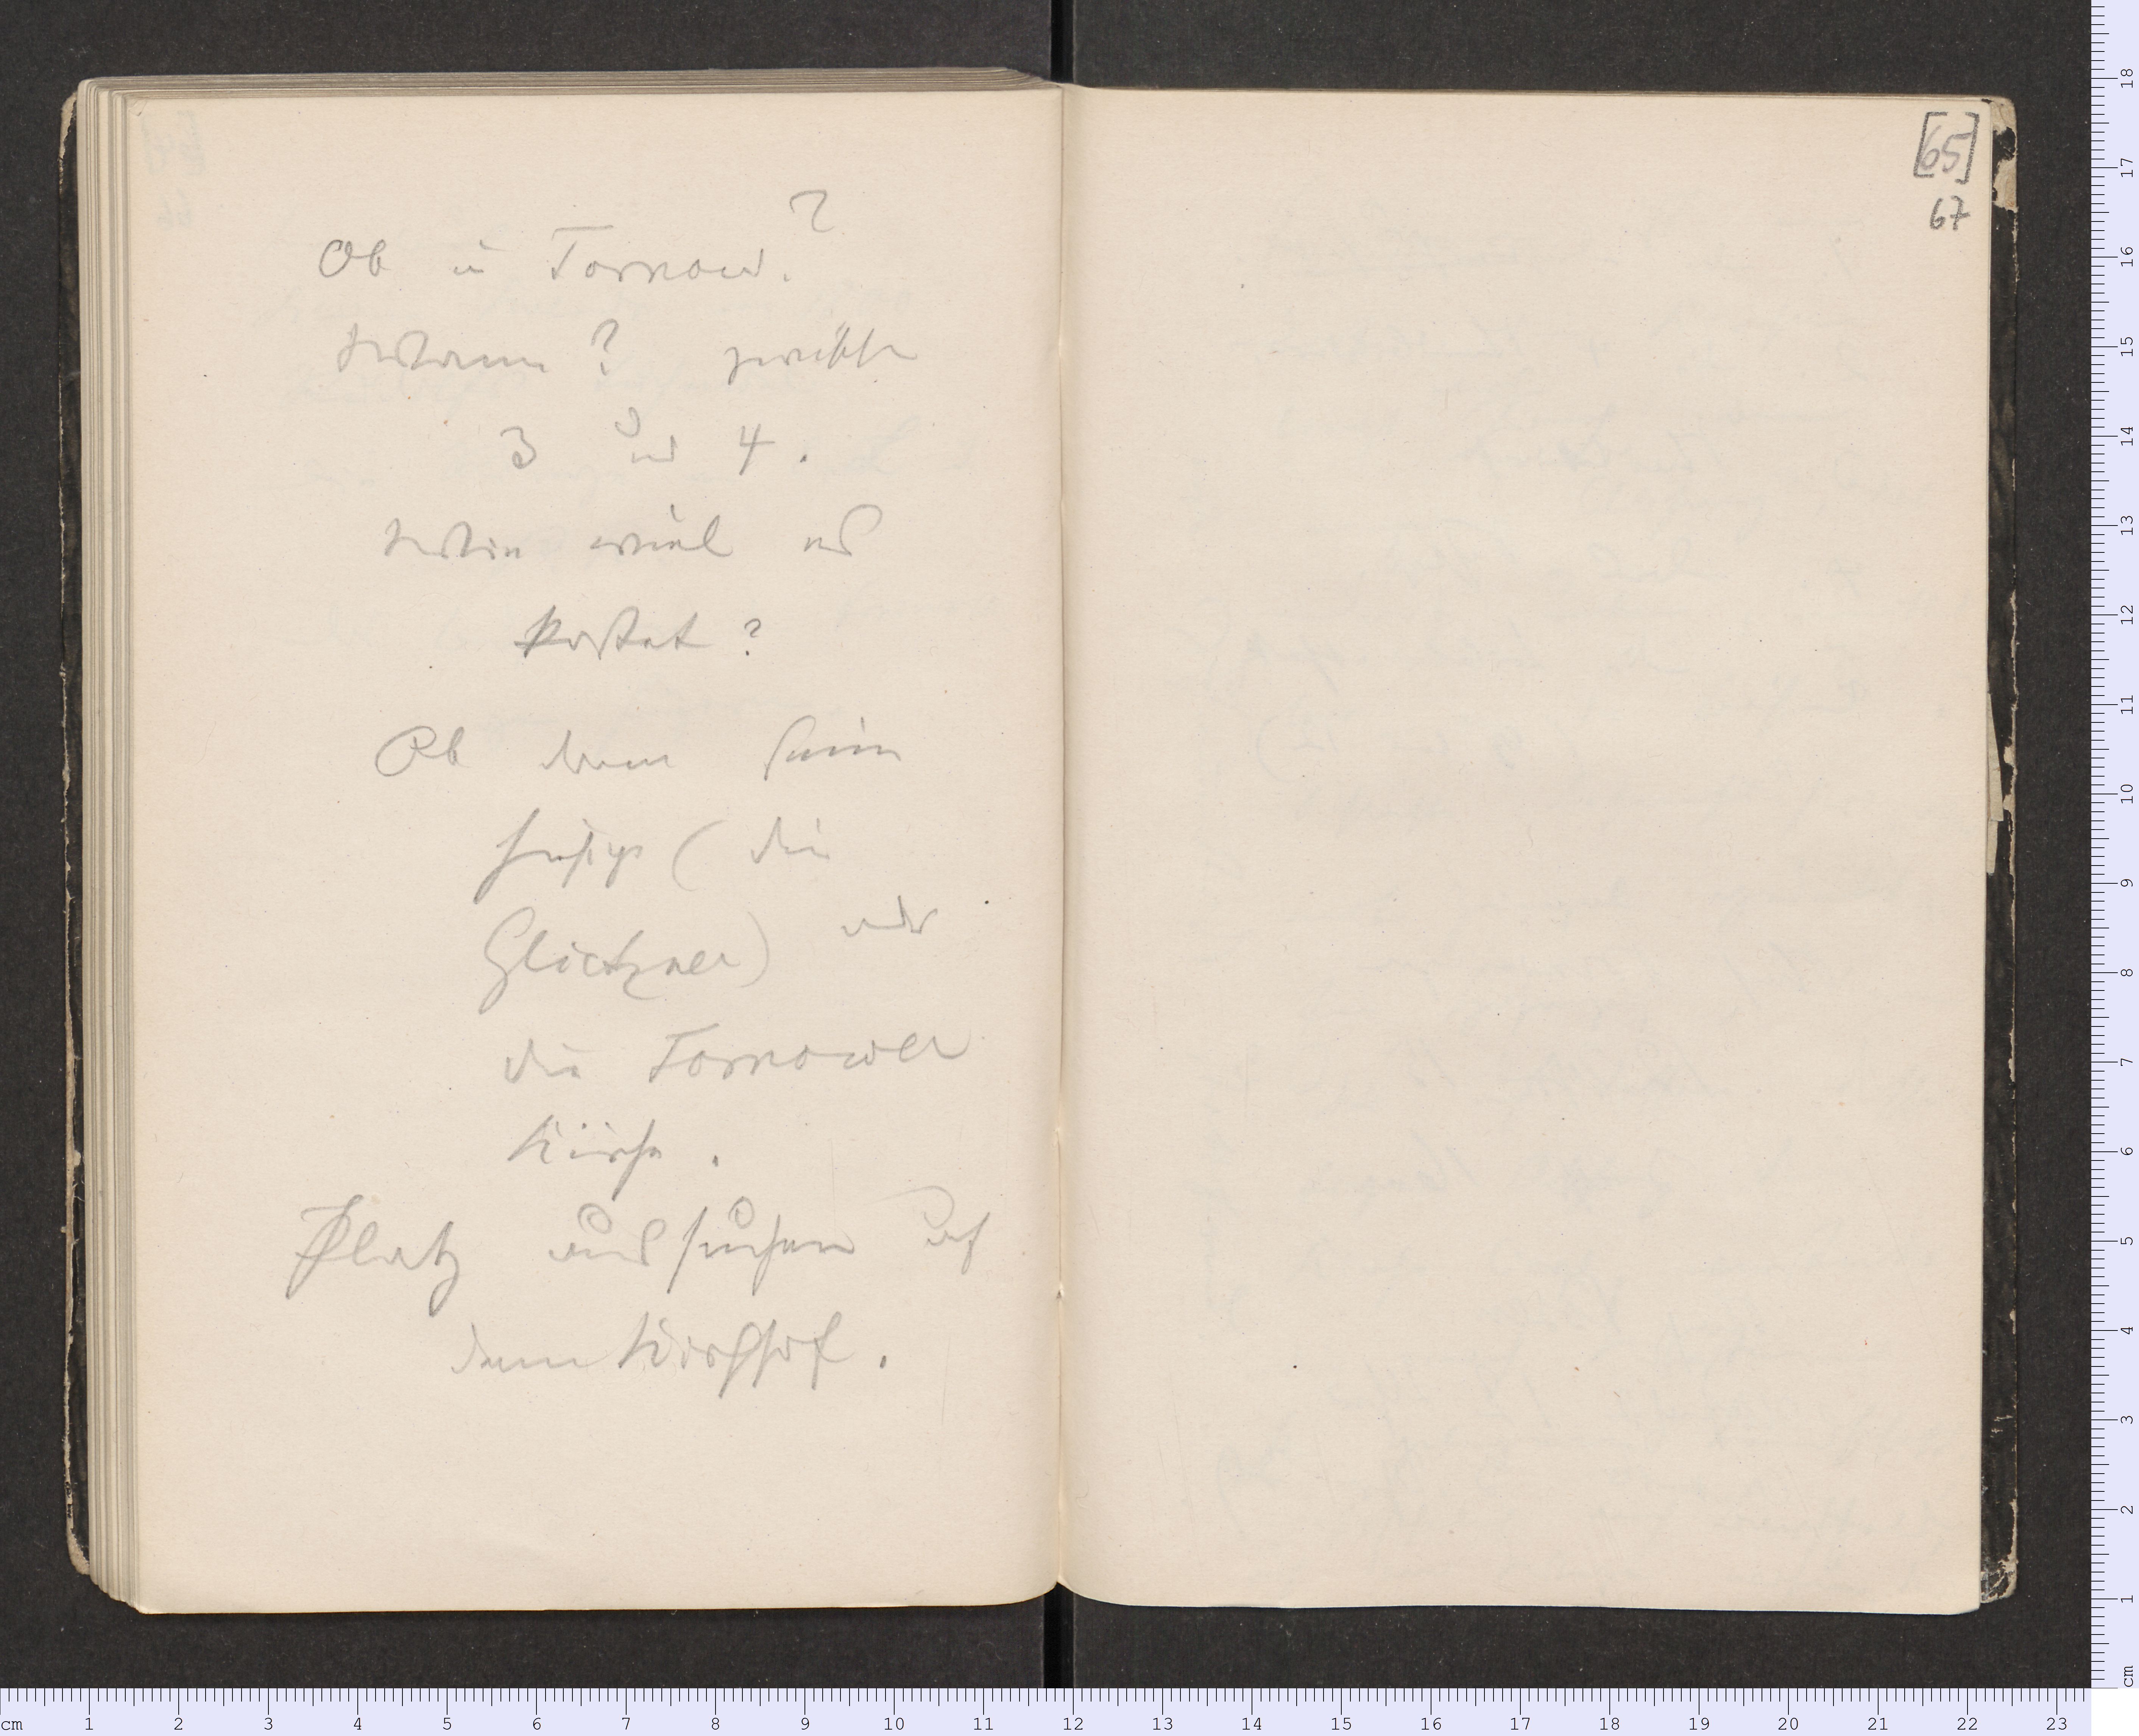 Ob in Tornow?
? zwischen
3 und 4.
wieviel es
kostet?
Ob
hiesige (die
Glietzner) oder
die Tornower
Kirche.
Platz aussuchen auf
dem Kirchhof.
[65]
67
cm 1 2 3 4 5 6 7 8 9 10 11 12 13 14 15 16 17 18 19 20 21 22 23
cm 1 2 3 4 5 6 7 8 9 10 11 12 13 14 15 16 17 18